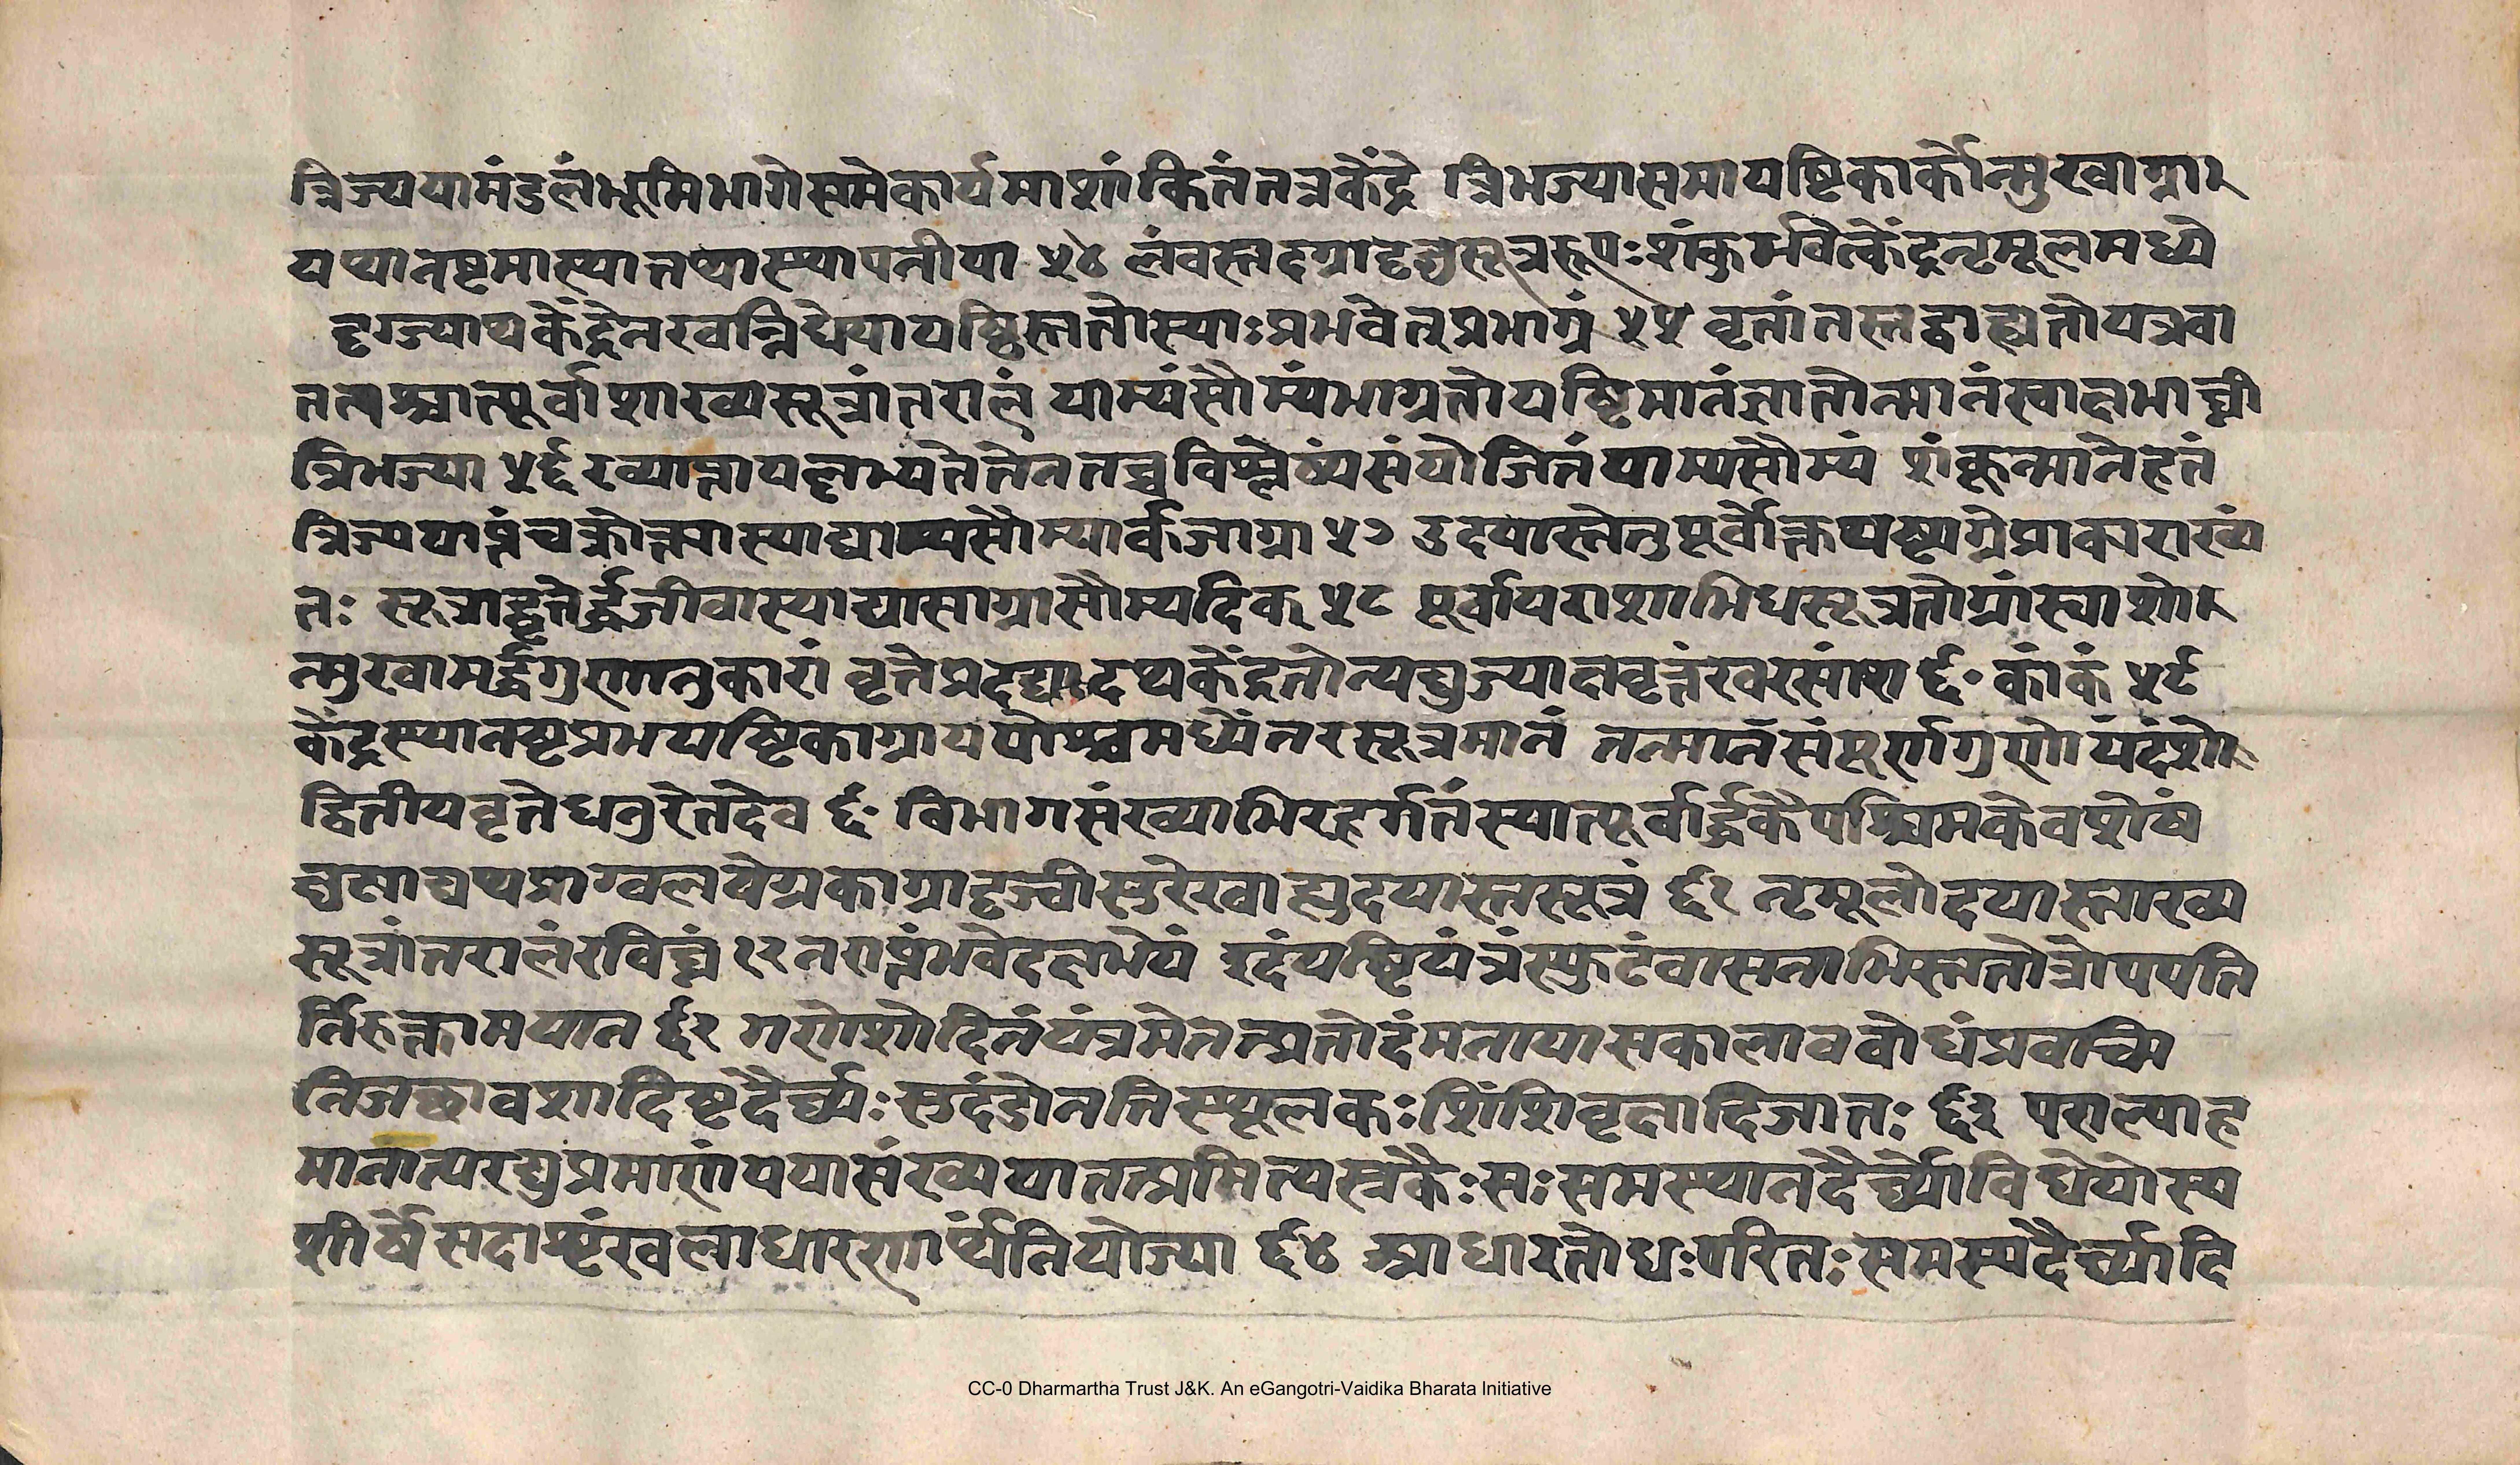 त्रिज्यया मंडलं भूमिभागे समे कार्यमाशांकितं तत्र केंद्रे त्रिभज्यासमा यष्टिकार्कोन्मुखाग्रा
यथा नष्टभा स्यात्तथा स्थापनीया ५४ लंवस्तदग्रादृजुसूत्ररूपः शंकुर्भवेत्केंद्रनृमूलमध्ये
दृग्ज्याथ केंद्रे नखवन्निधेया यष्टिस्ततोस्याः प्रभवेत्तु प्रभाग्रं ५५ वृत्तांतस्तद्वाह्यतो यत्र वा
तत्पश्चात्पूर्वाशाख्यसूत्रांतरालं याम्यं सौम्यं भाग्रतो यष्टिमानं ज्ञातोन्मानं स्वाक्षभाघ्नी
त्रिभज्या ५६ ख्याप्ता पलभ्यते तेन तच्च विश्लेष्य संयोजितं याम्यसौम्यं शंकून्मानेहृतं
त्रिज्ययाघ्नं चक्रोत्क्रमा स्याद्याम्यसौम्यार्कजाग्रा ५७ उदयास्ते तु पूर्वोक्तयष्ट्यग्रे प्राकाराख्य
तः सूत्राद्वृत्तेर्द्धजीवा स्याद्या साग्रा सौम्यदिक् ५८ पूर्वापराशाभिधसूत्रतोग्रां स्वाशो
न्मुखामर्द्धगुणानुकारां वृत्ते प्रदद्यादथ केंद्रतोन्यद्द्युज्याख्यवृत्तं खरसांश ६० कांकं ५९
केंद्रस्थानष्टप्रभयष्टिकाग्राययोश्च मध्येंतरसूत्रमानं तन्मानसंपूर्णगुणो यदंशो
द्वितीयवृत्ते धनुरेतदेव ६० विभागसंख्याभिरहर्गतं स्यात्पूर्वार्द्धके पश्चिमके वशेषं
क्षणाद्यथ प्राग्वलयेग्रकाग्रादृज्वी सुरेखा ह्युदयास्तसूत्रं ६१ नृमूलोदयास्ताख्य
सूत्रांतरालं रविघ्नं १२ नराप्तं भवेदक्षभेयं इदं यष्टियंत्रं स्फुटं वासनाभिस्ततोत्रोपपत्ति
र्निरुक्ता मया न ६२ गणेशोदितं यंत्रमेतत्प्रतोदं मनायासकालाववोधं प्रवच्मि
निजछावशादिष्टदैर्घ्यः सुदंडोनतिस्थूलकः शिंशिवृक्षादिजातः ६३ पराल्पाह
मानात्परद्युप्रमाणं यया संख्यया तत्प्रमित्यस्त्रकैः सः समस्थानदैर्घ्यो विधेयोस्य
शीर्षे सदा शृंखलाधारणार्थं नियोज्या ६४ आधारतोधः परितः समस्यदैर्घ्यादि
CC-0 Dharmartha Trust J&K. An eGangotri-Vaidika Bharata Initiative